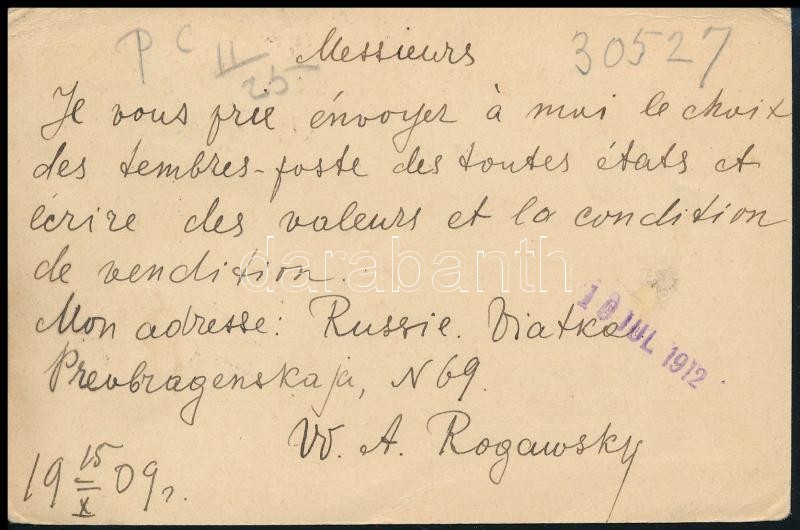 P C II/25
30527
Messieurs
Je vous prie énvoyer à moi le choix
des tembres-poste des toutes états et
écrire des valeurs et la condition
de vendition.
darabanth
Mon adresse: Russie. Viatka
10 JUL 1912
Preobragenskaja, N 69.
W. A. Rogawsky
19 15/X 09 г.